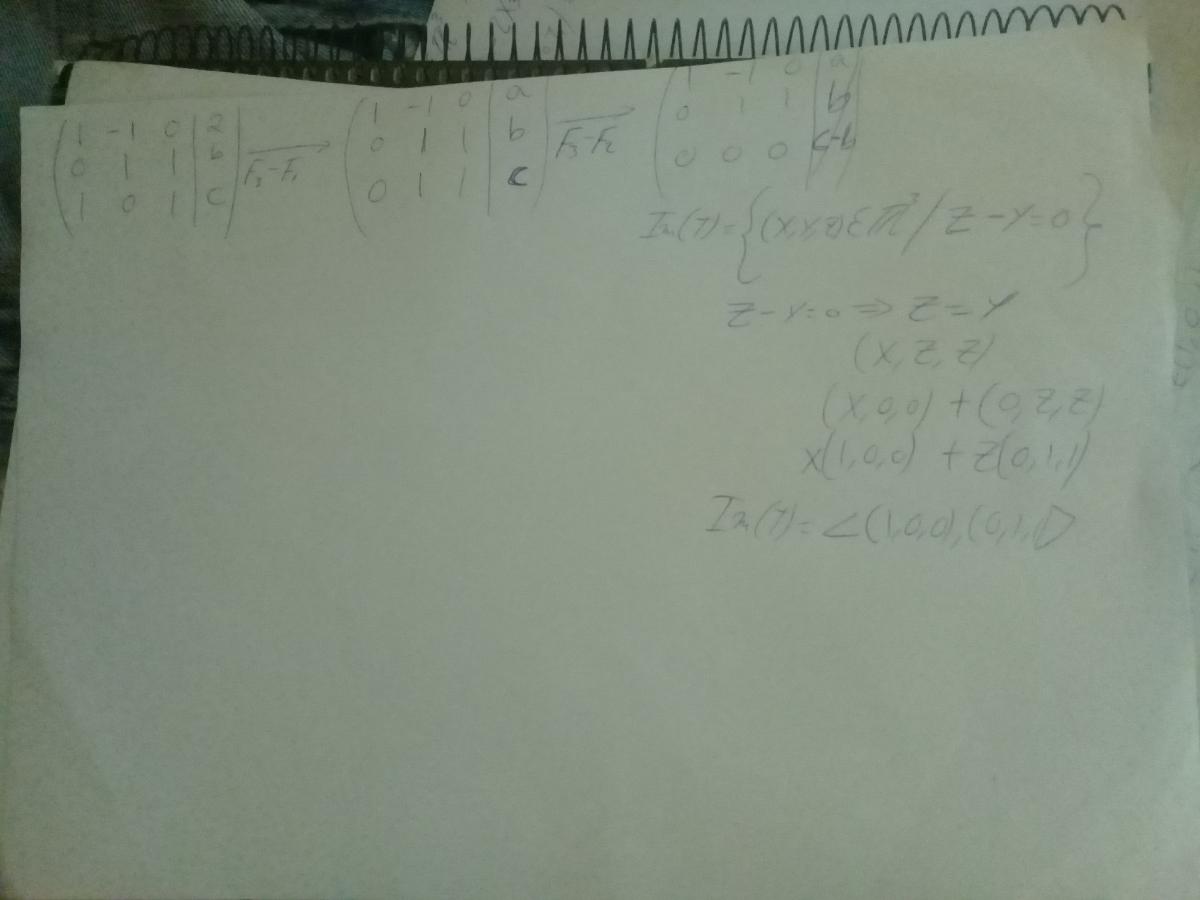 (1 -1 0 | a) F3-F1 → (1 -1 0 | a) F3-F2 → (1 -1 0 | a)
(0 1 1 | b) (0 1 1 | b) (0 1 1 | b)
(1 0 1 | c) (0 1 1 | c) (0 0 0 | c-b)
Im(T)={(x,y,z)∈ℝ³/ z-y=0}
z-y=0 ⇒ z=y
(x,z,z)
(x,0,0)+(0,z,z)
x(1,0,0) + z(0,1,1)
Im(T)= <(1,0,0),(0,1,1)>